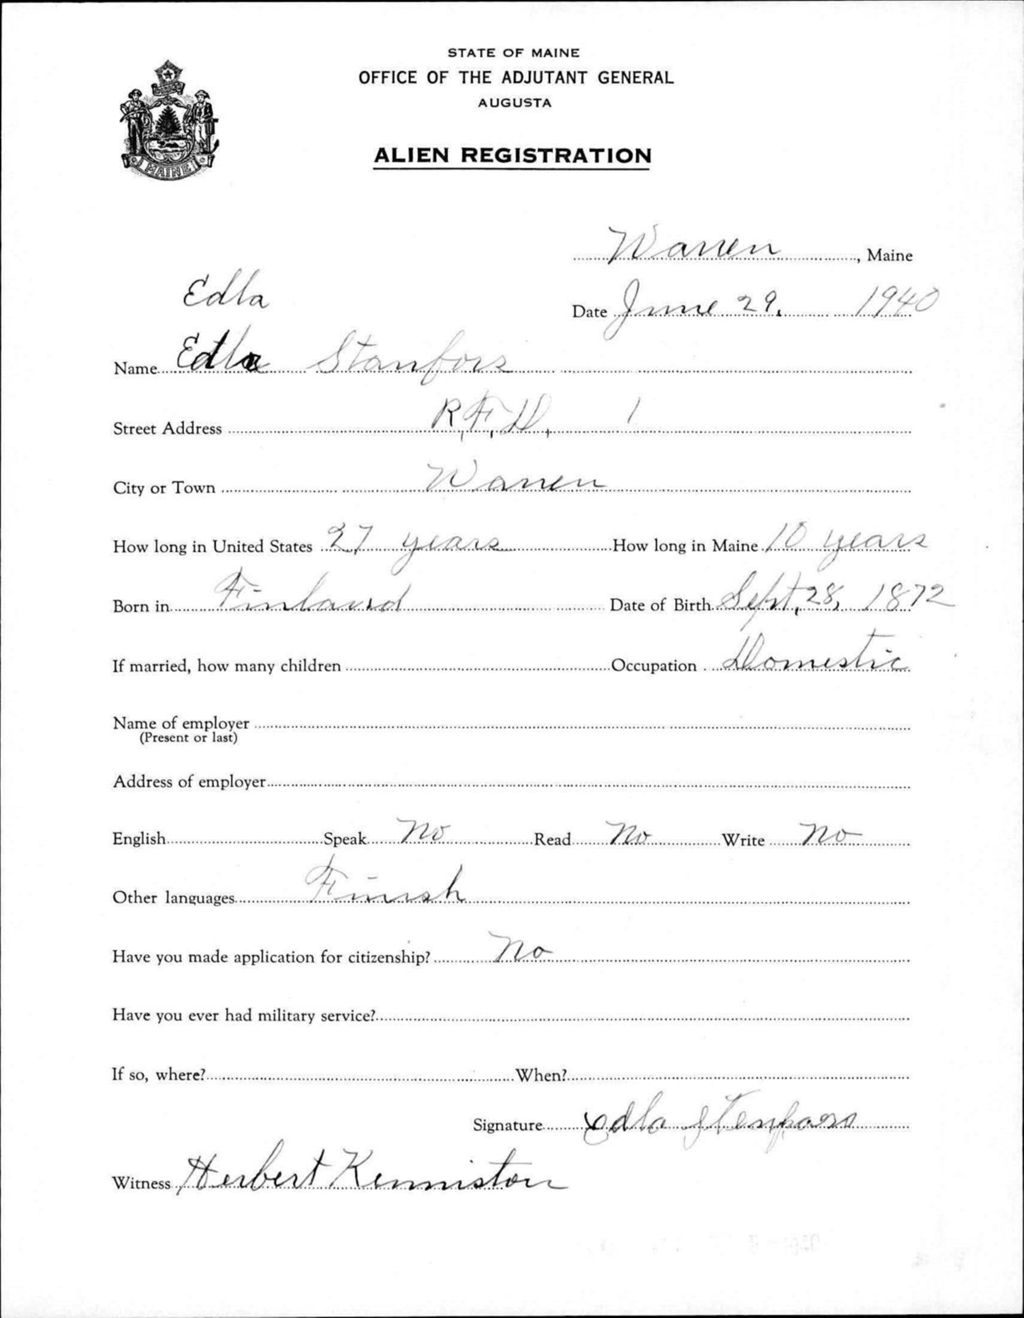 STATE OF MAINE
OFFICE OF THE ADJUTANT GENERAL
AUGUSTA
ALIEN REGISTRATION
MAINE
Warren, Maine
Edla
Date June 29, 1940
Name Edla Stanfors
Street Address R.F.D. 1
City or Town Warren
How long in United States 27 years How long in Maine 10 years
Born in Finland Date of Birth Sept, 28, 1872
If married, how many children Occupation Domestic
Name of employer
(Present or last)
Address of employer
English Speak No Read No Write No
Other languages Finish
Have you made application for citizenship? No
Have you ever had military service?
If so, where? When?
Signature Edla Stenfors
Witness Herbert Kenniston